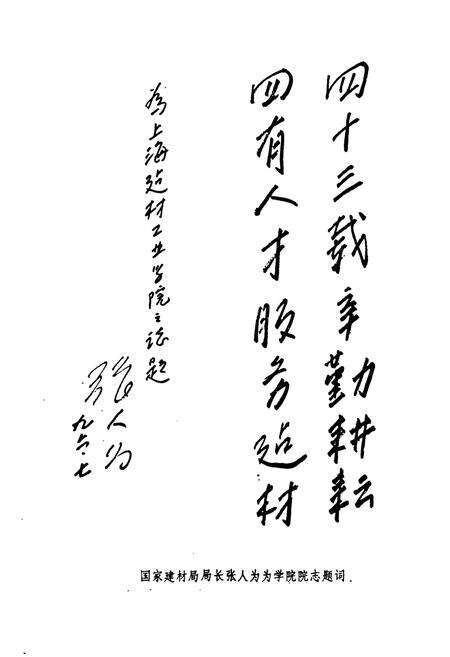 四十三载辛勤耕耘
四有人才服务建材
为上海建材工业学院院志题
张人为
九六.七
国家建材局局长张人为为学院院志题词.